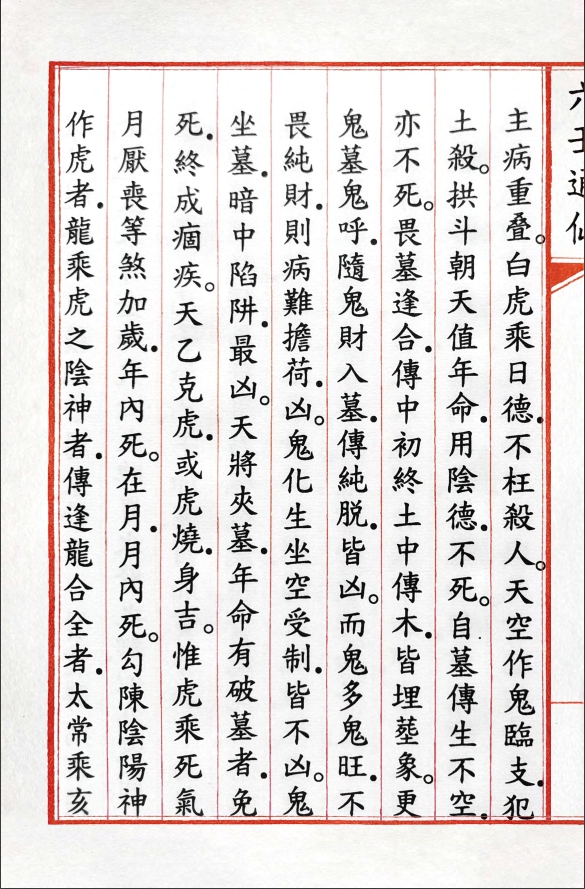 六壬通仙
主病重叠。白虎乘日德.不枉殺人。天空作鬼臨支.犯
土殺。拱斗朝天值年命.用陰德.不死。自墓傳生不空.
亦不死。畏墓逢合.傳中初終土中傳木.皆埋塟象。更
鬼墓鬼呼.隨鬼財入墓.傳純脱.皆凶。而鬼多鬼旺.不
畏純財.則病難擔荷.凶。鬼化生坐空受制.皆不凶。鬼
坐墓.暗中陷阱.最凶。天將夾墓.年命有破墓者.免
死.終成痼疾。天乙克虎.或虎燒.身吉。惟虎乘死氣
月厭喪等煞加歲.年內死。在月.月內死。勾陳陰陽神
作虎者.龍乘虎之陰神者.傳逢龍合全者.太常乘亥